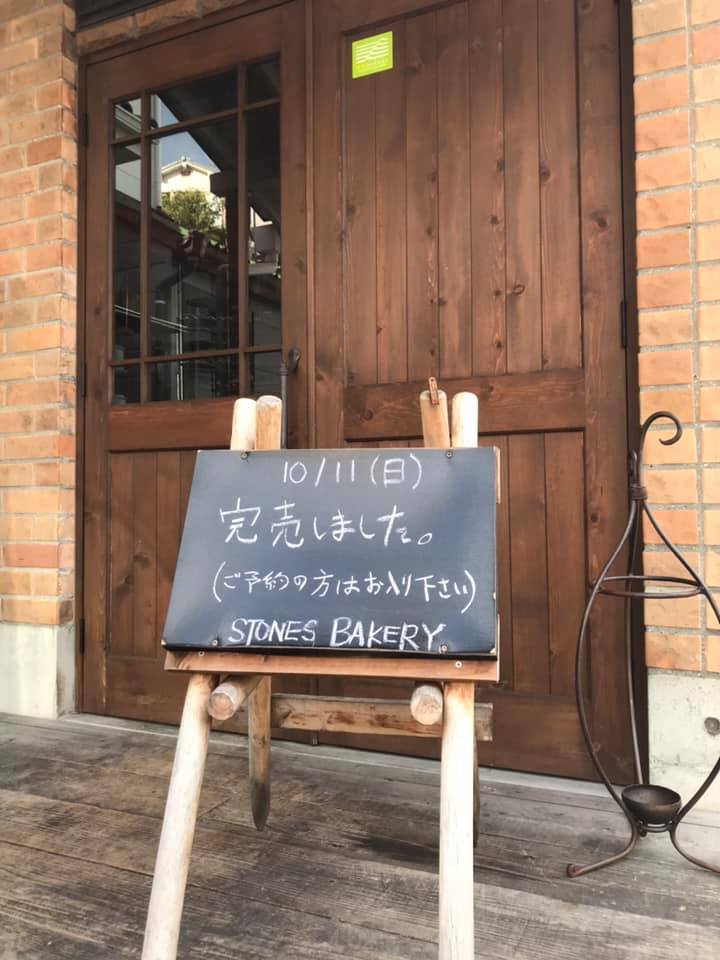 10/11(日)
完売しました。
(ご予約の方はお入り下さい)
STONES BAKERY